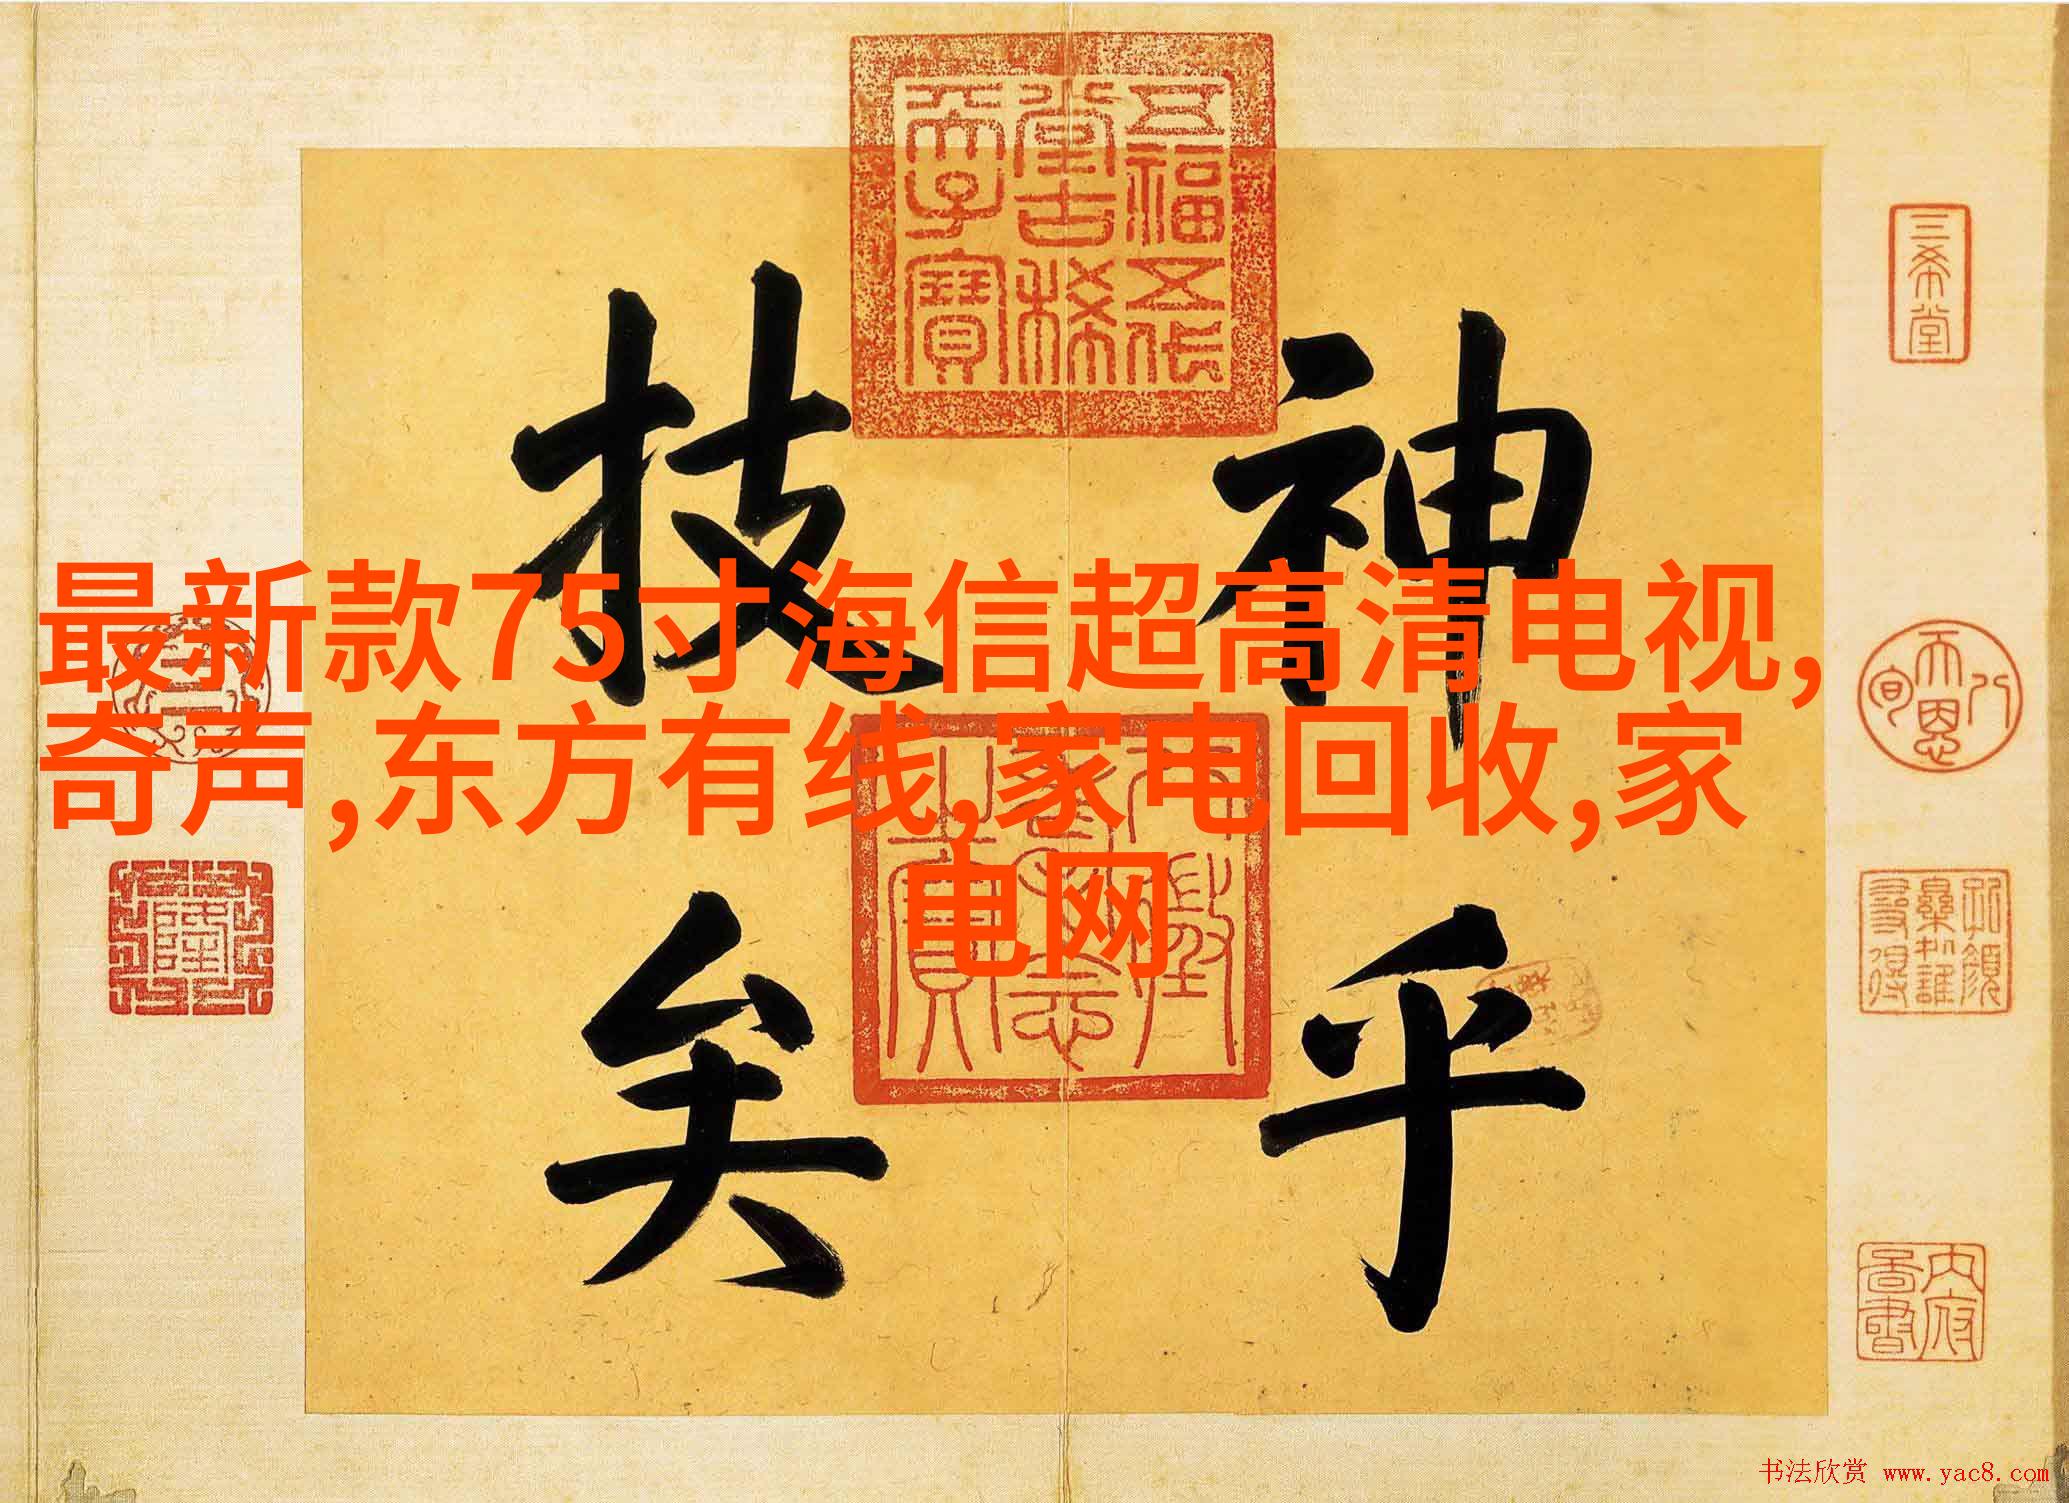 最新款75寸海信超高清电视,
奇声,东方有线,家电回收,家
电网
神乎
技矣
五福五代
堂古稀
天子寶
三希堂
八
天恩
旬
内府
書法欣赏 www.yac8.com